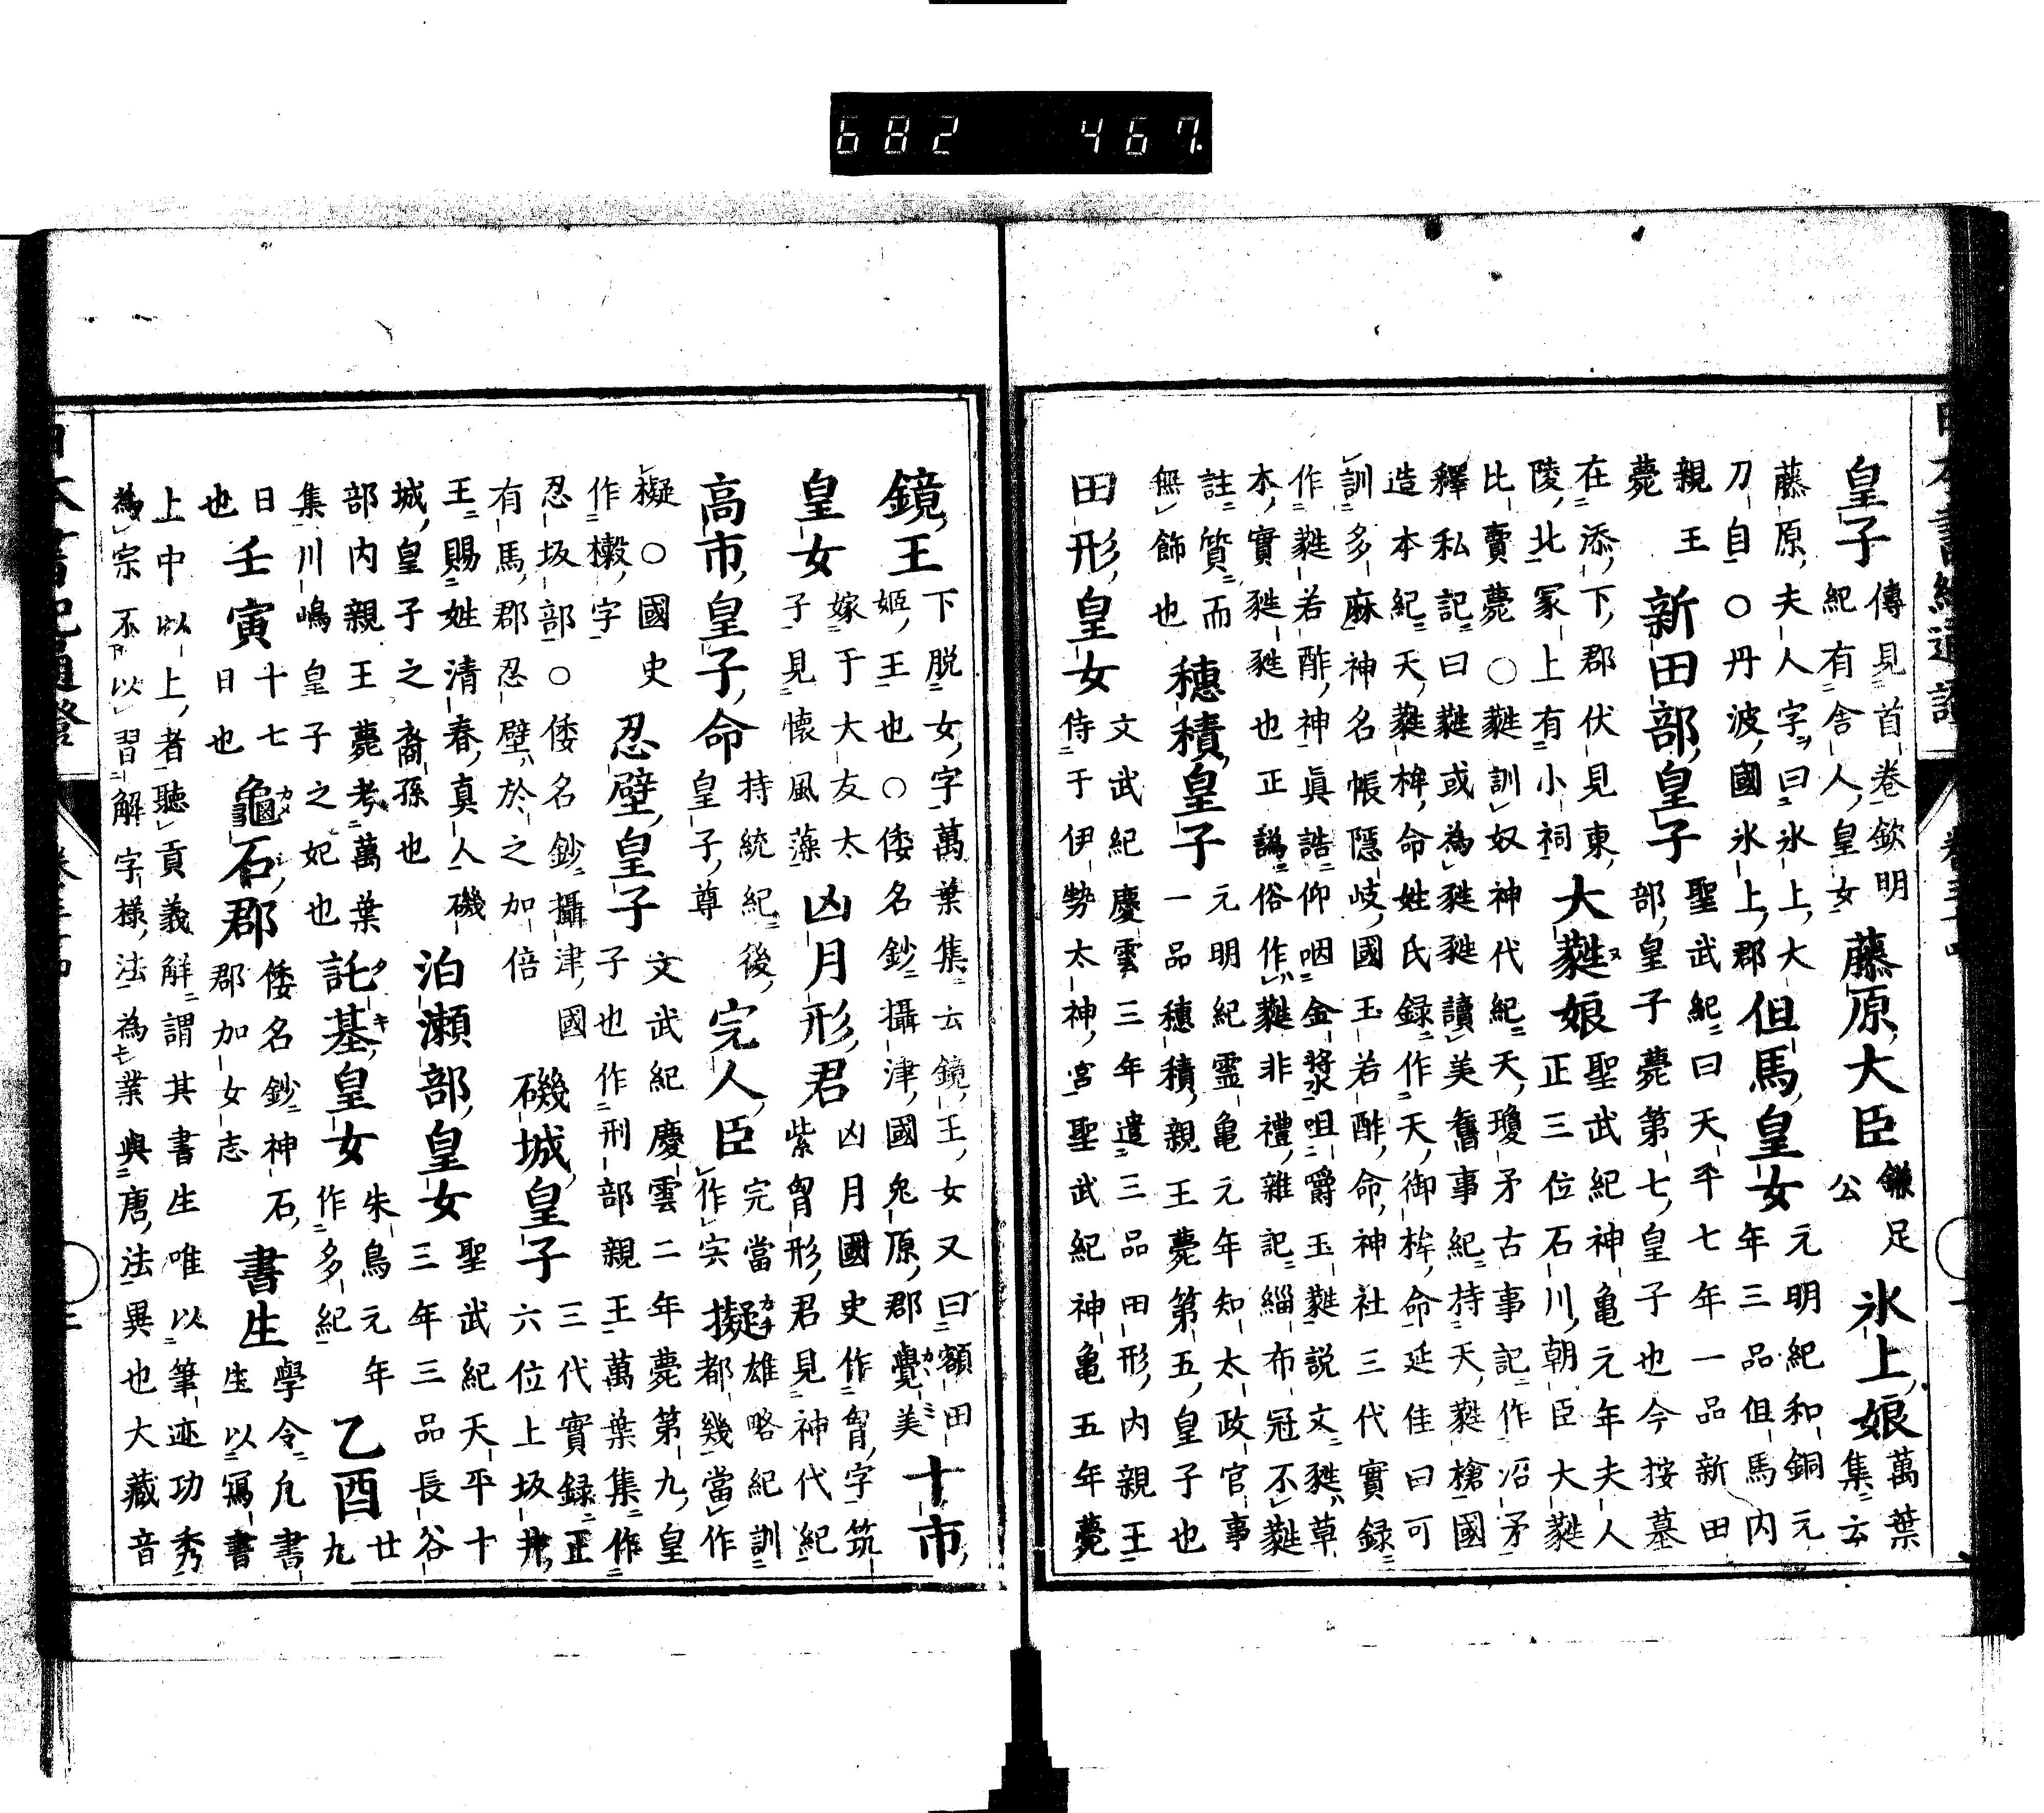 682 467
皇子 傳見首卷欽明
紀有舍人皇女 藤原大臣 鎌足
公 氷上娘 萬葉
集云
藤原夫人字曰氷上大
刀自○丹波國氷上郡 但馬皇女 元明紀和銅元
年三品但馬内
親王
薨 新田部皇子 聖武紀曰天平七年一品新田
部皇子薨第七皇子也今按墓
在添下郡伏見東
陵北冢上有小祠 大蕤娘 聖武紀神亀元年夫人
正三位石川朝臣大蕤
比賣薨○蕤訓奴神代紀天瓊矛古事記作沼矛
釋私記曰蕤或為甤甤讀美舊事紀持天蕤槍國
造本紀天蕤桙命姓氏録作天御桙命延佳曰可
訓多麻神名帳隱岐國玉若酢命神社三代實録
作蕤若酢神眞誥仰咽金漿咀嚼玉蕤説文甤草
木實甤甤也正譌俗作蕤非禮雜記緇布冠不蕤
註質而
無飾也 穗積皇子 元明紀靈亀元年知太政官事
一品穗積親王薨第五皇子也
田形皇女 文武紀慶雲三年遣三品田形内親王
侍于伊勢太神宮聖武紀神亀五年薨
鏡王 下脱女字萬葉集云鏡王女又曰額田
姬王也○倭名鈔攝津國兎原郡覺美 十市
皇女 嫁于大友太
子見懷風藻 凶月形君 凶月國史作胷字筑
紫胷形君見神代紀
高市皇子命 持統紀後
皇子尊 宍人臣 完當
作宍 擬 雄略紀訓
都幾當作
擬○國史
作樴字 忍壁皇子 文武紀慶雲二年薨第九皇
子也作刑部親王萬葉集作
忍坂部○倭名鈔攝津國
有馬郡忍壁於之加倍 磯城皇子 三代實録正
六位上坂井
王賜姓清春真人磯
城皇子之裔孫也 泊瀬部皇女 聖武紀天平十
三年三品長谷
部内親王薨考萬葉
集川嶋皇子之妃也 託基皇女 朱鳥元年
作多紀 乙酉 廿
九
日
也 壬寅 十七
日也 龜石郡 倭名鈔神石
郡加女志 書生 學令凡書
生以寫書
上中以上者聽貢義解謂其書生唯以筆迹功秀
為宗不以習解字様法為業與唐法異也大藏音